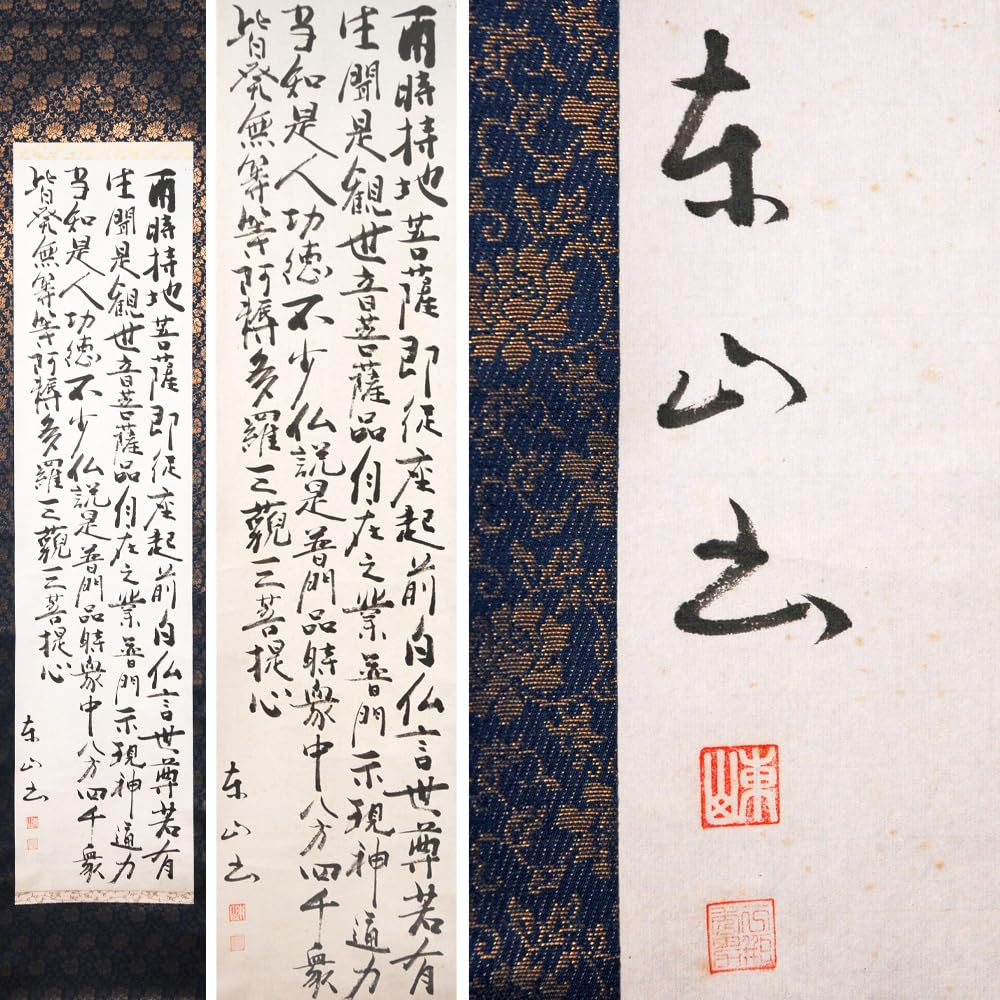 爾時持地菩薩即従座起前白仏言世尊若有
生聞是観世音菩薩品自在之業普門示現神通力
当知是人功徳不少仏説是普門品時衆中八方四千衆
皆発無等等阿耨多羅三藐三菩提心
東山書
爾時持地菩薩即従座起前白仏言世尊若有
生聞是観世音菩薩品自在之業普門示現神通力
当知是人功徳不少仏説是普門品時衆中八方四千衆
皆発無等等阿耨多羅三藐三菩提心
東山書
東山書
東山